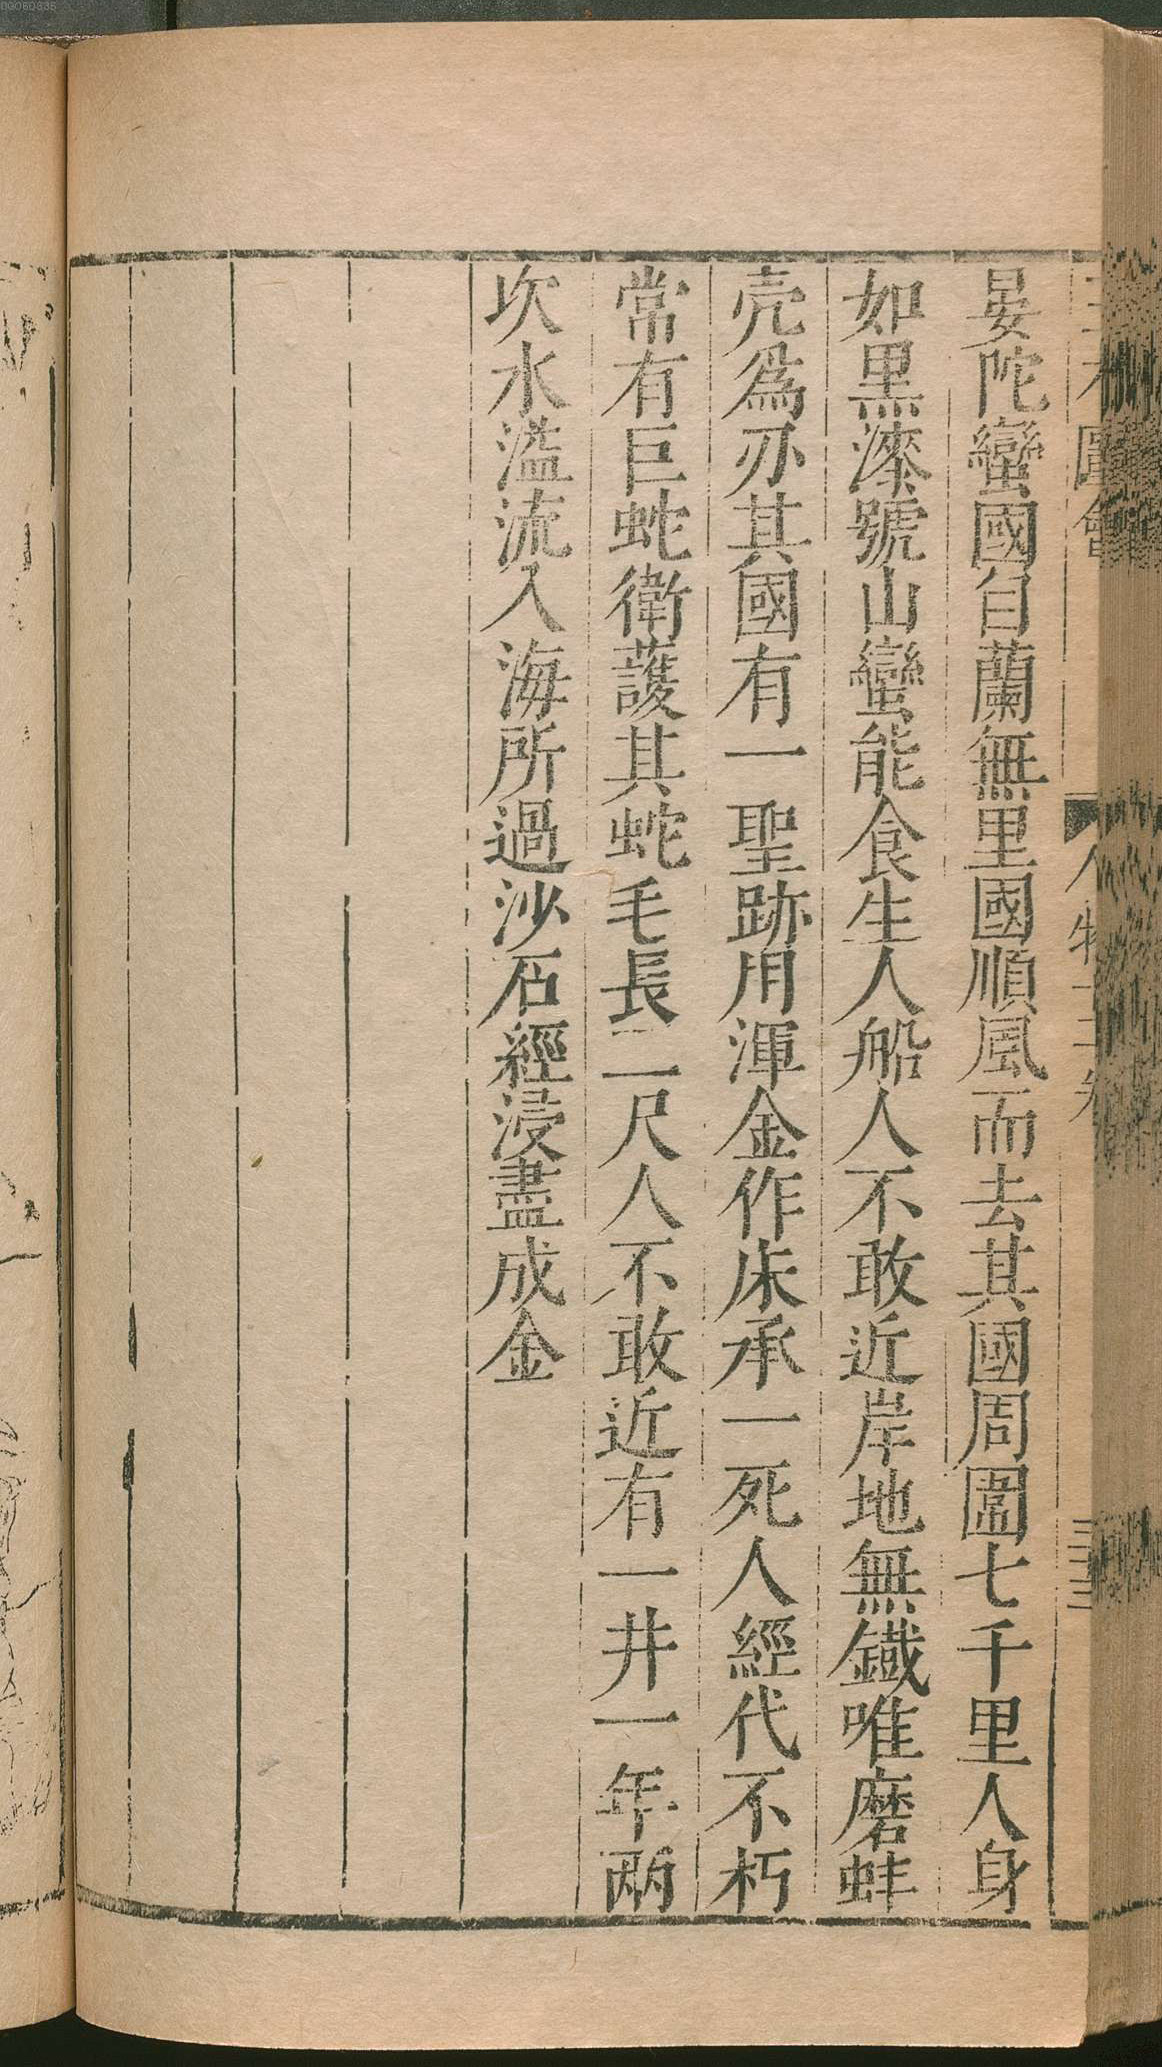 晏陀蠻國自蘭無里國順風而去其國周圍七千里人身
如黑漆號山蠻能食生人船人不敢近岸地無鐵唯磨蚌
壳為刅其國有一聖跡用渾金作床承一死人經代不朽
常有巨蛇衛護其蛇毛長二尺人不敢近有一井一年兩
次水溢流入海所過沙石經浸盡成金
圖會
人物